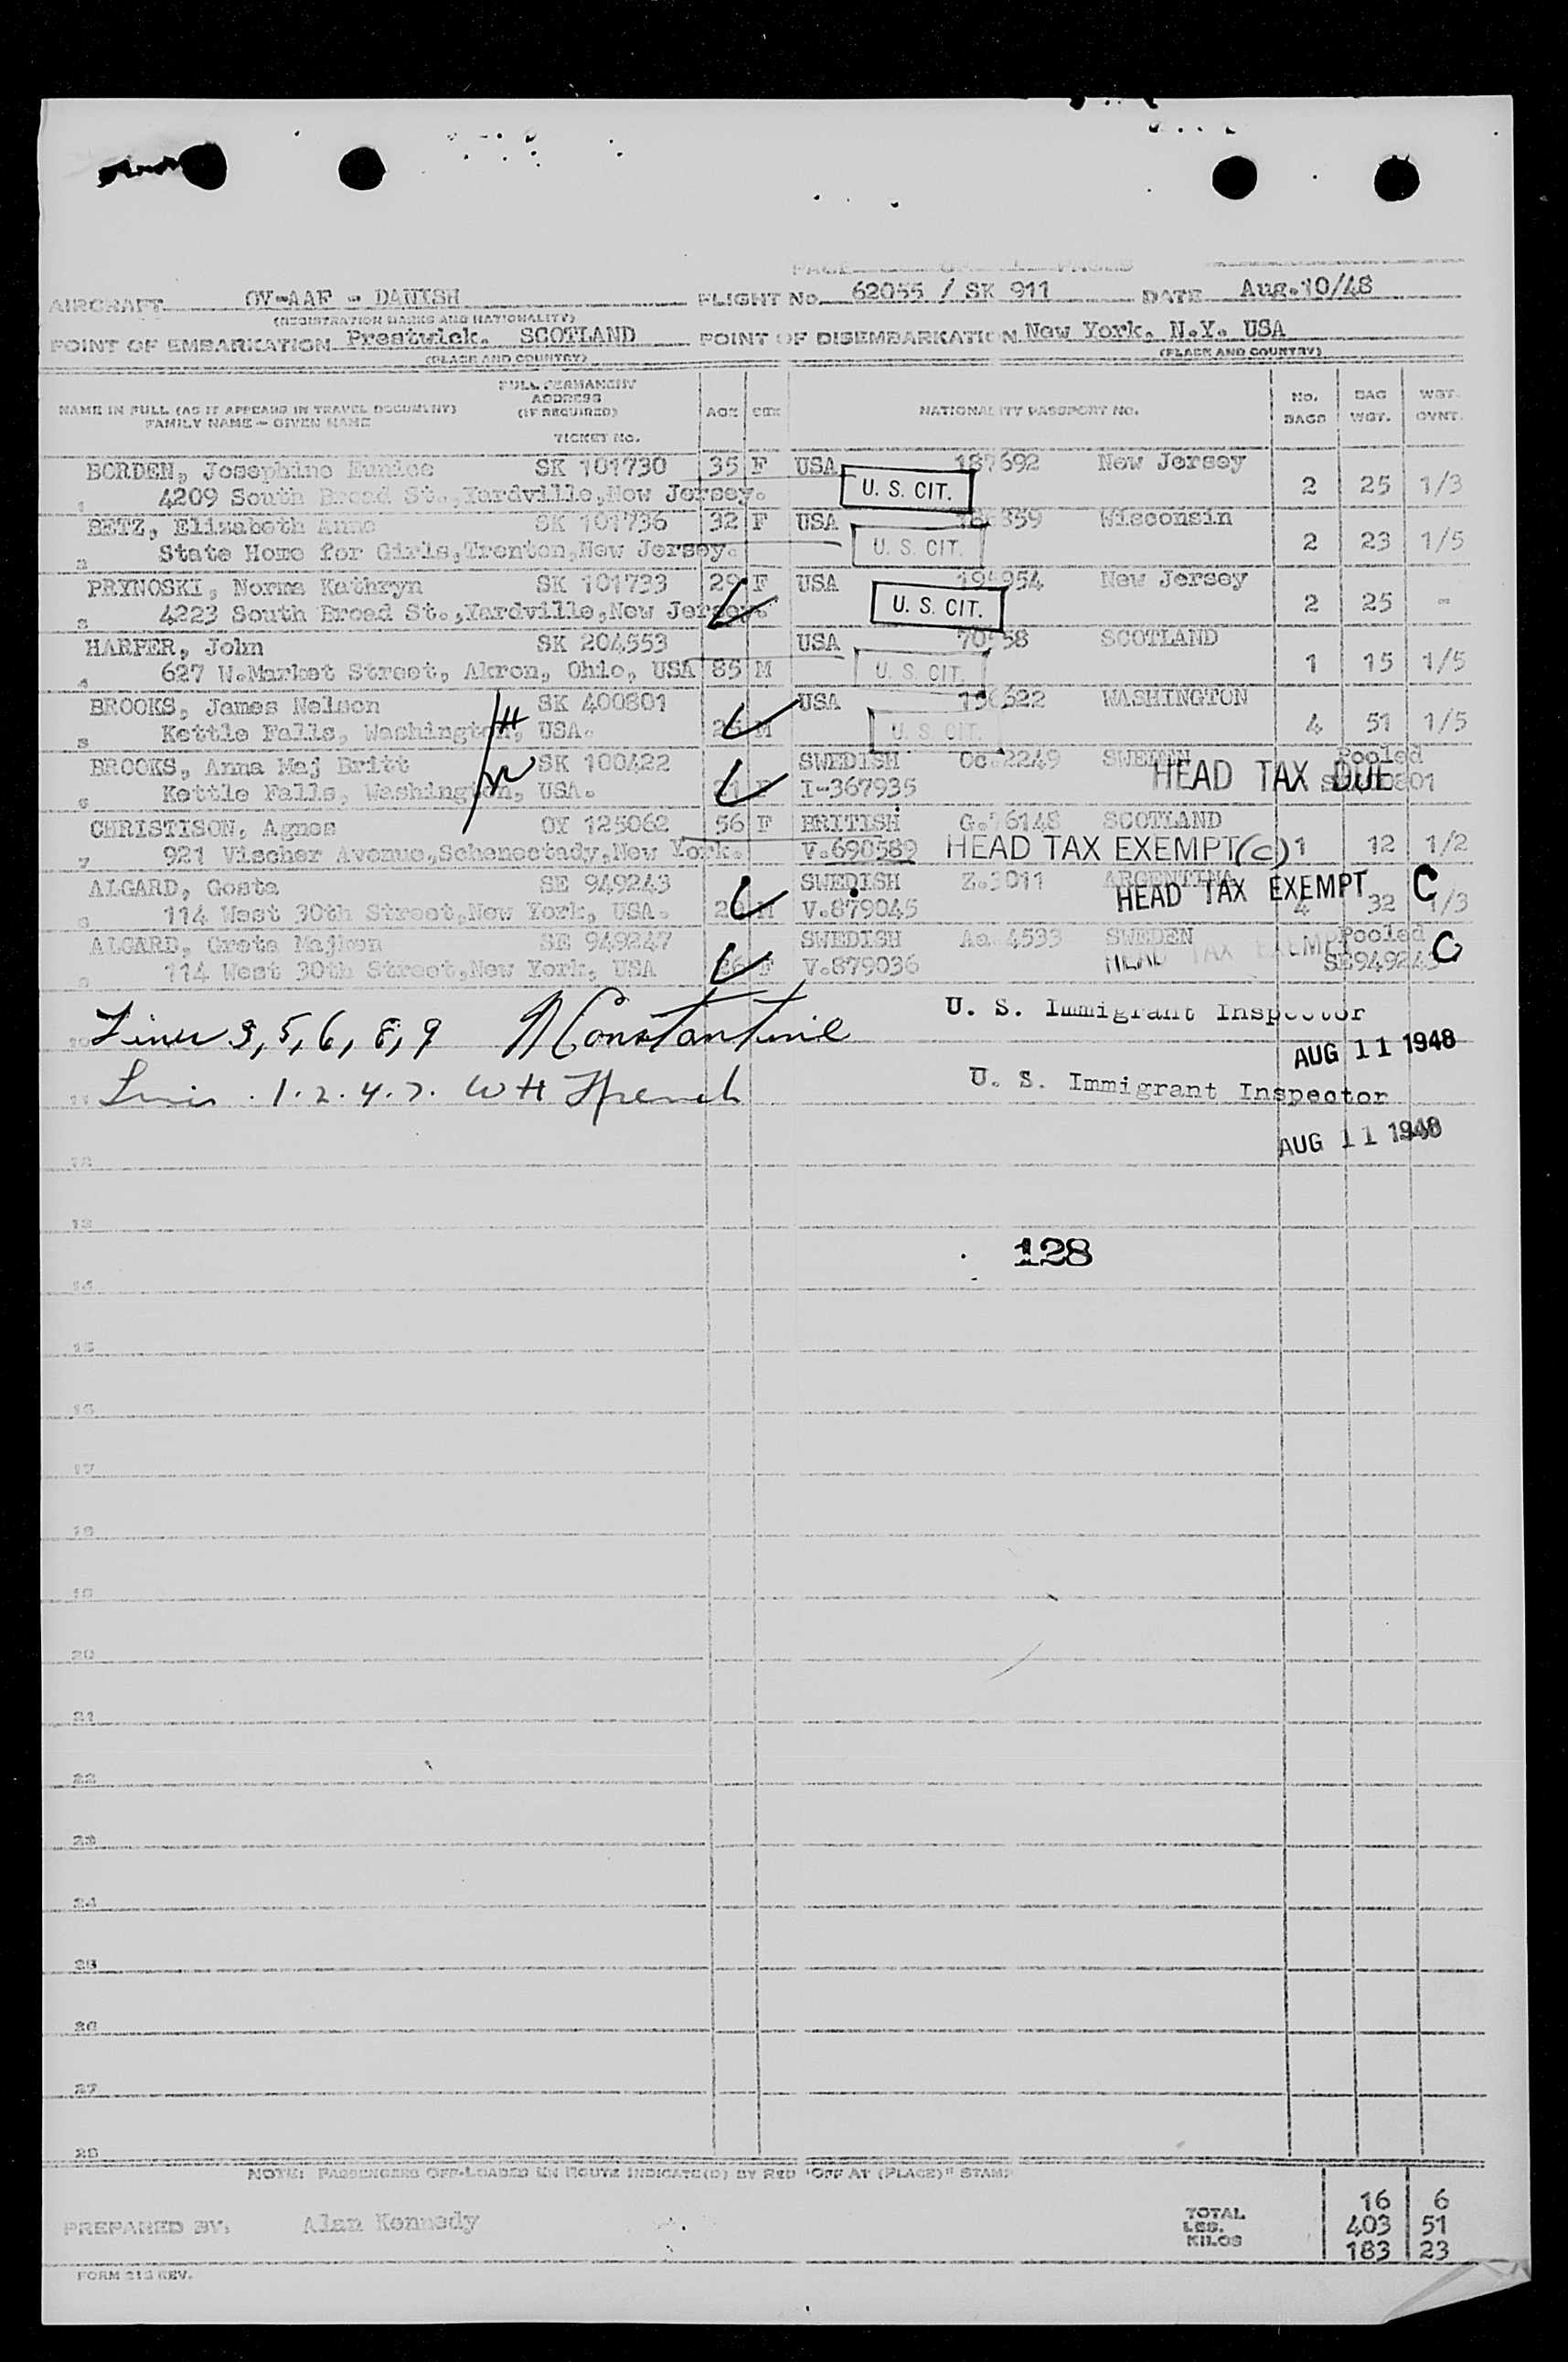 PAGE OF 1 PAGES
AIRCRAFT OY-AAF - DANISH FLIGHT No. 62055 / SK 911 DATE Aug.10/48
(REGISTRATION MARKS AND NATIONALITY)
POINT OF EMBARKATION Prestwick. SCOTLAND POINT OF DISEMBARKATION New York, N.Y. USA
(PLACE AND COUNTRY) (PLACE AND COUNTRY)
NAME IN FULL (AS IT APPEARS IN TRAVEL DOCUMENT) FAMILY NAME - GIVEN NAME
FULL PERMANENT ADDRESS (IF REQUIRED)
TICKET No.
AGE SEX NATIONALITY PASSPORT No. No. BAGS BAG WGT. WGT. OVNT.
BORDEN, Josephine Eunice SK 101730 35 F USA 187692 New Jersey
1 4209 South Broad St.,Yardville,New Jersey. U. S. CIT. 2 25 1/3
BETZ, Elizabeth Anne SK 101736 32 F USA 359 Wisconsin
2 State Home for Girls,Trenton,New Jersey. U. S. CIT. 2 23 1/5
PRYNOSKI, Norma Kathryn SK 101733 29 F USA 194954 New Jersey
3 4223 South Broad St.,Yardville,New Jersey. U. S. CIT. 2 25 -
HARPER, John SK 204553 USA 70 58 SCOTLAND
4 627 W.Market Street, Akron, Ohio, USA 85 M U. S. CIT. 1 15 1/5
BROOKS, James Nelson SK 400801 USA 622 WASHINGTON
5 Kettle Falls, Washington, USA. M U. S. CIT. 4 51 1/5
BROOKS, Anna Maj Britt SK 100422 SWEDISH Oc.2249 SWEDEN Pooled
6 Kettle Falls, Washington, USA. 21 F I-367935 HEAD TAX DUE
CHRISTISON, Agnes OY 125062 56 F BRITISH G.76148 SCOTLAND
7 921 Vischer Avenue,Schenectady,New York. V.690589 HEAD TAX EXEMPT (C) 1 12 1/2
ALGARD, Gosta SE 949243 SWEDISH Z.3011 ARGENTINA
8 114 West 30th Street,New York, USA. M V.879045 HEAD TAX EXEMPT C 4 32 1/3
ALGARD, Greta Majken SE 949247 SWEDISH Aa 4533 SWEDEN Pooled
9 114 West 30th Street,New York, USA 26 F V.879036 HEAD TAX EXEMPT SE949243 C
10 Lines 3, 5, 6, 8, 9 N Constantine U. S. Immigrant Inspector
AUG 11 1948
11 Lines . 1. 2. 4. 7. W H French U. S. Immigrant Inspector
AUG 11 1948
12
13
128
14
15
16
17
18
19
20
21
22
23
24
25
26
27
28
NOTE: PASSENGERS OFF-LOADED EN ROUTE INDICATE(D) BY RED "OFF AT (PLACE)" STAMP
PREPARED BY: Alan Kennedy
TOTAL 16 6
LBS. 403 51
KILOS 183 23
FORM 213 REV.